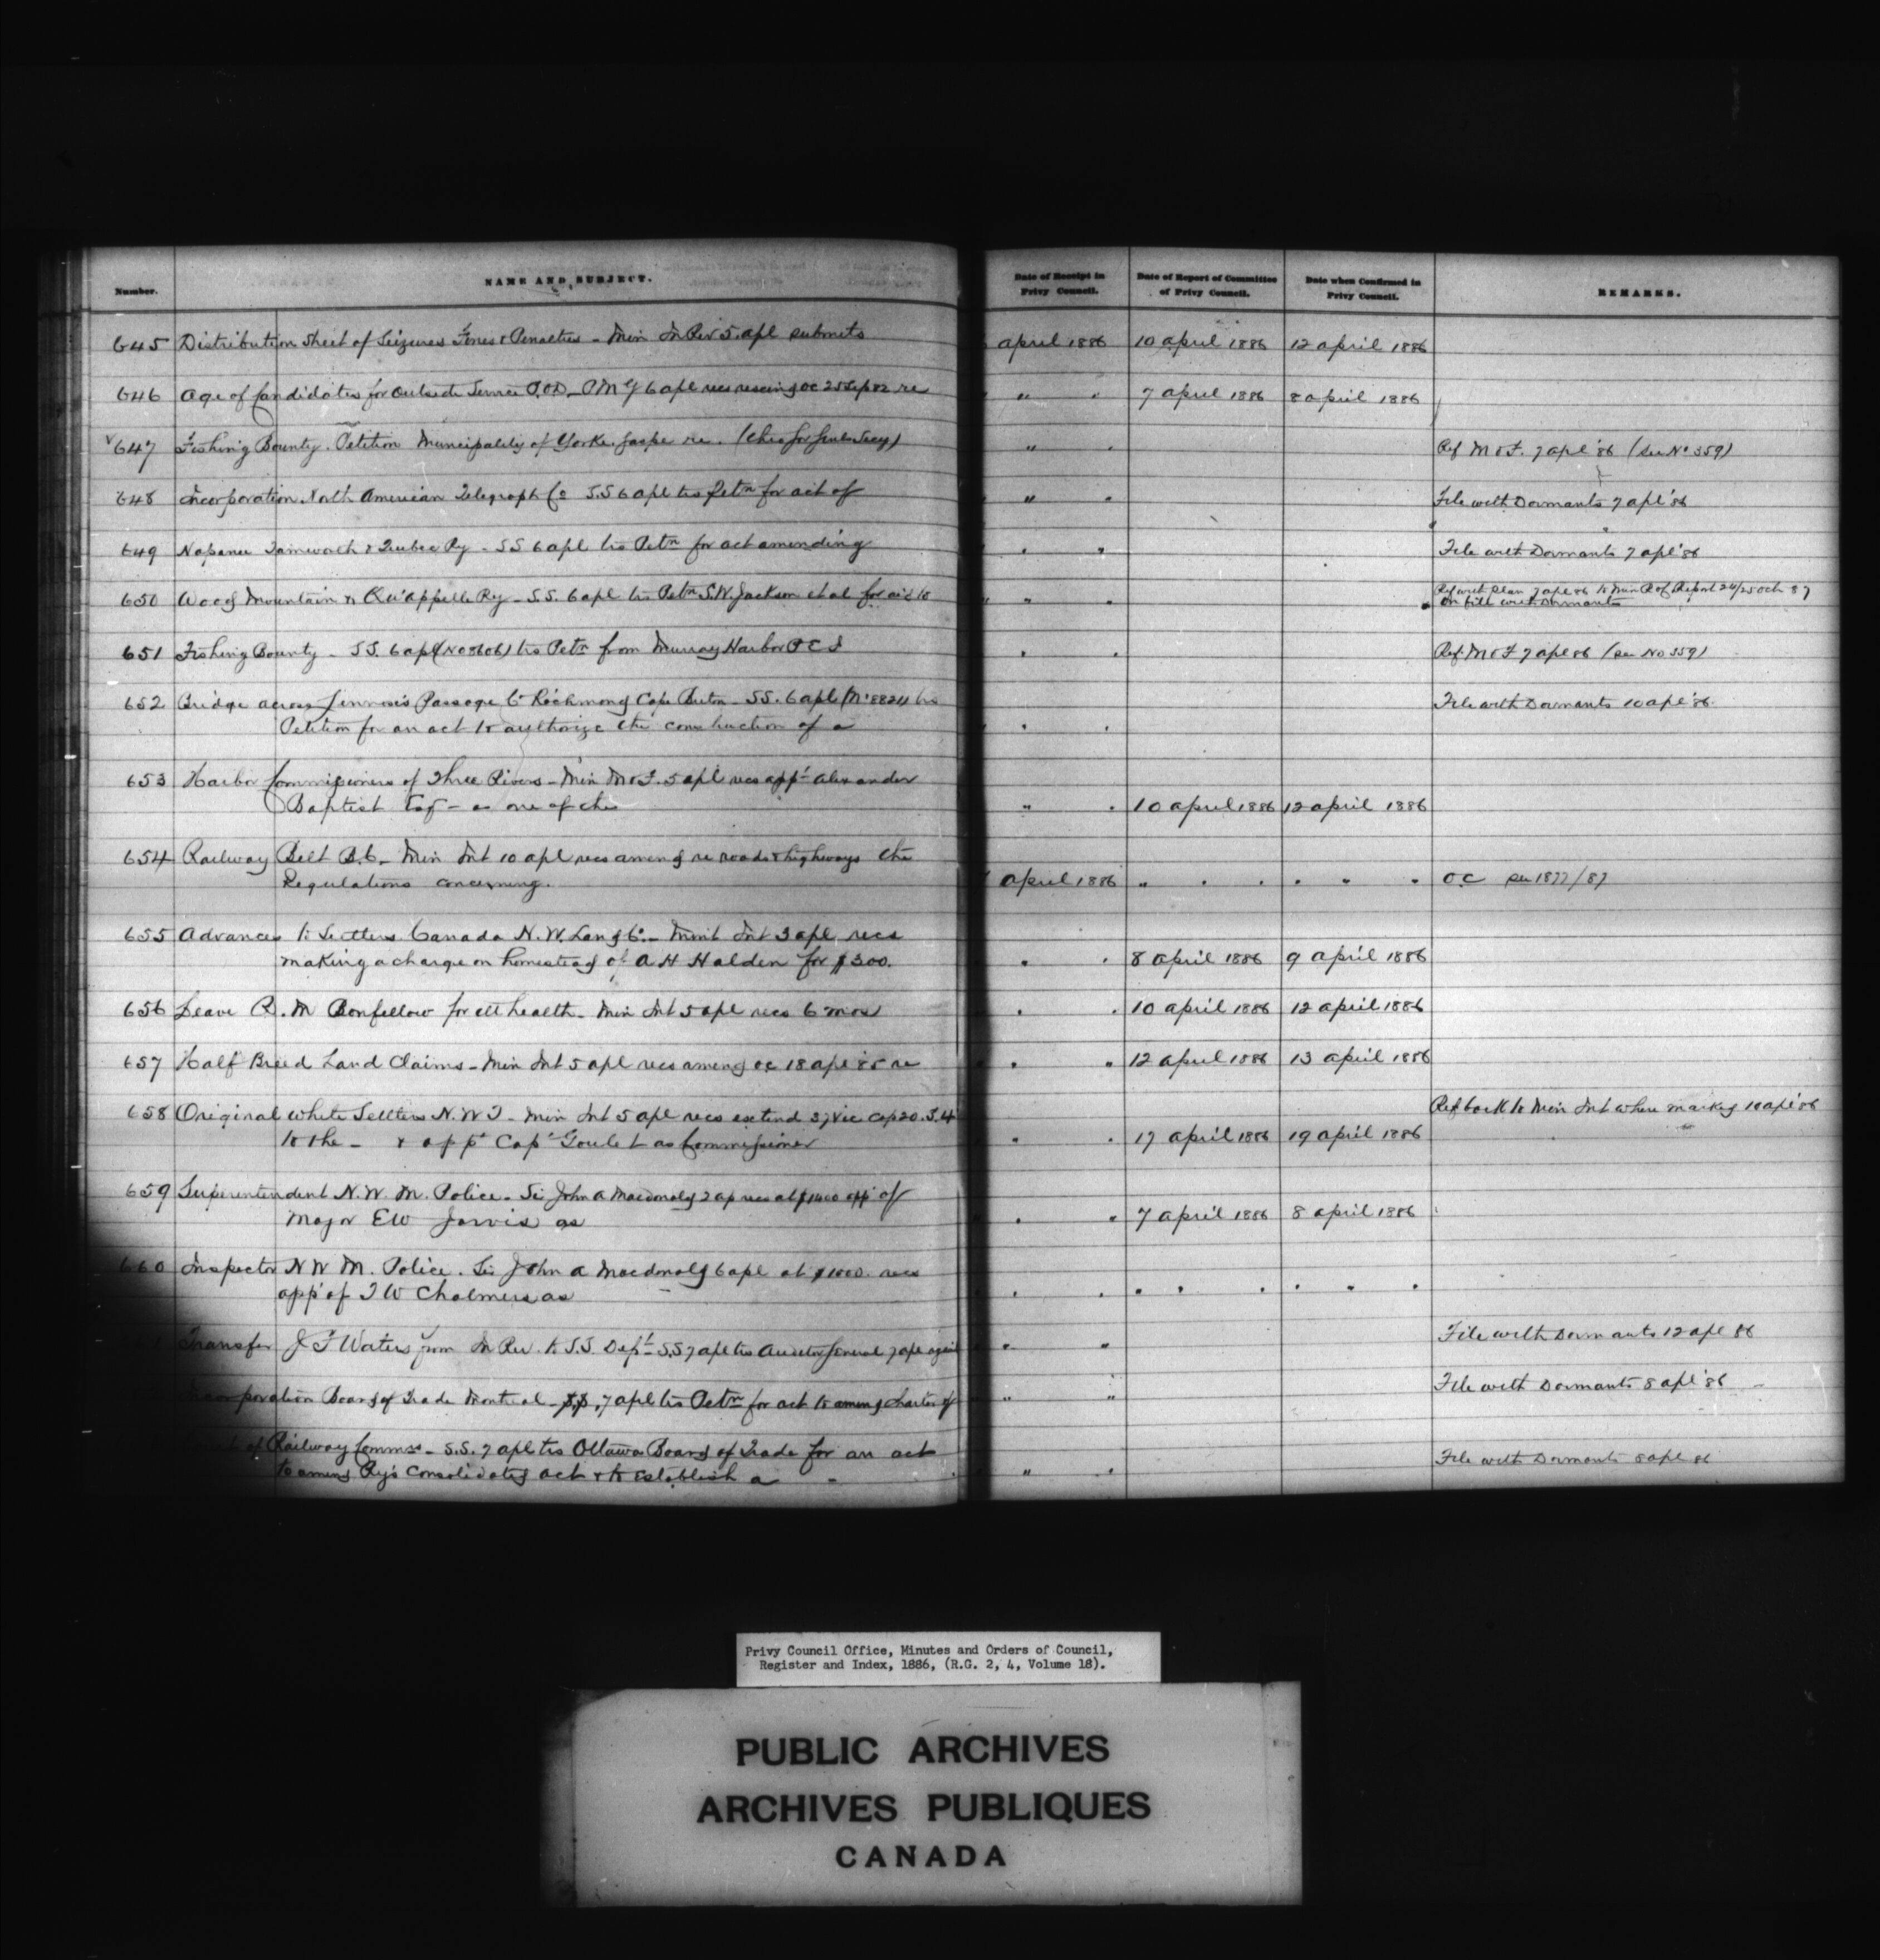 Number. NAME AND SUBJECT. Date of Receipt in Privy Council. Date of Report of Committee of Privy Council. Date when Confirmed in Privy Council. REMARKS.
645 Distribution Sheet of Seizures Fines & Penalties - Min In Rev 5 apl submits april 1886 10 april 1886 12 april 1886
646 Age of Candidates for Outside Service P.O.D. - P M G 6 apl recs rescindg OC 25 Sep 82 re " " 7 april 1886 8 april 1886
647 Fishing Bounty. Petition Municipality of York Gaspe re. " " Ref M & F. 7 apl '86 (see No 359)
648 Incorporation North American Telegraph Co S.S 6 apl trs Petn for act of " " File with Dormants 7 apl '86
649 Napanee Tamworth & Quebec Ry - S S 6 apl trs Petn for act amending " " File with Dormants 7 apl '86
650 Wood Mountain & Qu'appelle Ry - S.S. 6 apl trs Petn S.W. Jackson et al for aid to " " Ref with plan 7 apl 86 to Min R of Report 24/25 Oct 87
on file with Dormants
651 Fishing Bounty - S S. 6 apl (No 8606) trs Petn from Murray Harbor P E I " " Ref. M & F 7 apl 86 (see No 359)
652 Bridge across Lennox's Passage Co Richmond Cape Breton - S S. 6 apl (No 8824) trs File with Dormants 10 apl '86.
Petition for an act to authorize the construction of a " "
653 Harbor Commissioners of Three Rivers - Min M & F. 5 apl recs appt Alexander
Baptist Esq - as one of the " " 10 april 1886 12 april 1886
654 Railway Belt B.C. - Min Int 10 apl recs amendg re roads & highways the
Regulations concerning. april 1886 " " " " " " O.C see 1877/87
655 Advances to Settlers Canada N.W. Land Co. - Mint Int 3 apl recs
making a charge on homestead of A H Halden for $300. " " 8 april 1886 9 april 1886
656 Leave R. M Bonfellow for ill health - Min Int 5 apl recs 6 mos " " 10 april 1886 12 april 1886
657 Half Breed Land Claims - Min Int 5 apl recs amendg oc 18 apl '85 re " " 12 april 1886 13 april 1886
658 Original white Settlers N.W T - Min Int 5 apl recs extend 37 Vic Cap 20. S. 4 Ref back to Min Int where marked 10 apl '86
to the - & appt Capt Goulet as Commissioner " " 17 april 1886 19 april 1886
659 Superintendent N.W. M. Police - Sir John A Macdonald 2 ap recs at $1400 appt of
Major E W Jarvis as " " 7 april 1886 8 april 1886
660 Inspector N W M. Police. Sir John A Macdonald 6 apl at $1000. recs
appt of T W Chalmers as " " " " " " " "
Transfer J F Waters from In Rev. to S.S. Dept - S.S 7 apl trs Auditor General 7 apl against " " File with Dormants 12 apl 86
Incorporation Board of Trade Montreal - S.S. 7 apl trs Petn for act to amend charter of " " File with Dormants 8 apl '86
of Railway Commrs - S.S. 7 apl trs Ottawa Board of Trade for an act
to amend Ry's Consolidated act & to establish a - " " File with Dormants 8 apl 86
Privy Council Office, Minutes and Orders of Council,
Register and Index, 1886, (R.G. 2, 4, Volume 18).
PUBLIC ARCHIVES
ARCHIVES PUBLIQUES
CANADA